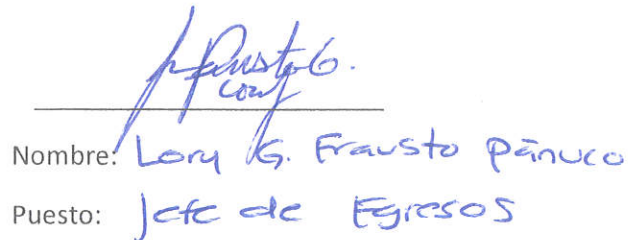 Nombre: Lory G. Frausto Pánuco
Puesto: Jefe de Egresos